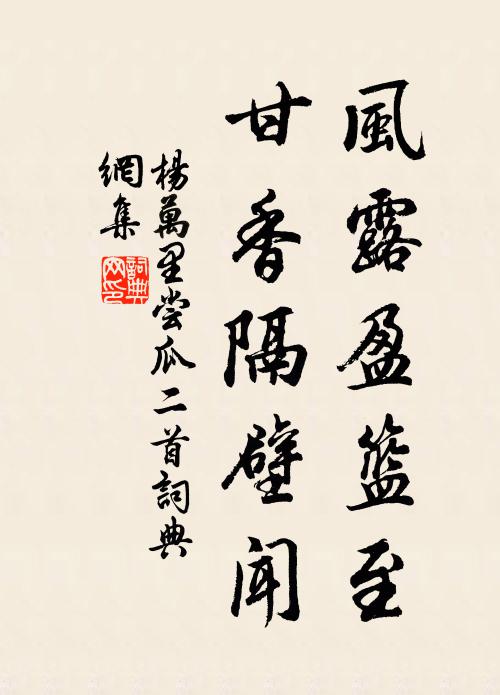 風露盈籃至
甘香隔壁聞
楊萬里嘗瓜二首詞典
網集
詞典網印